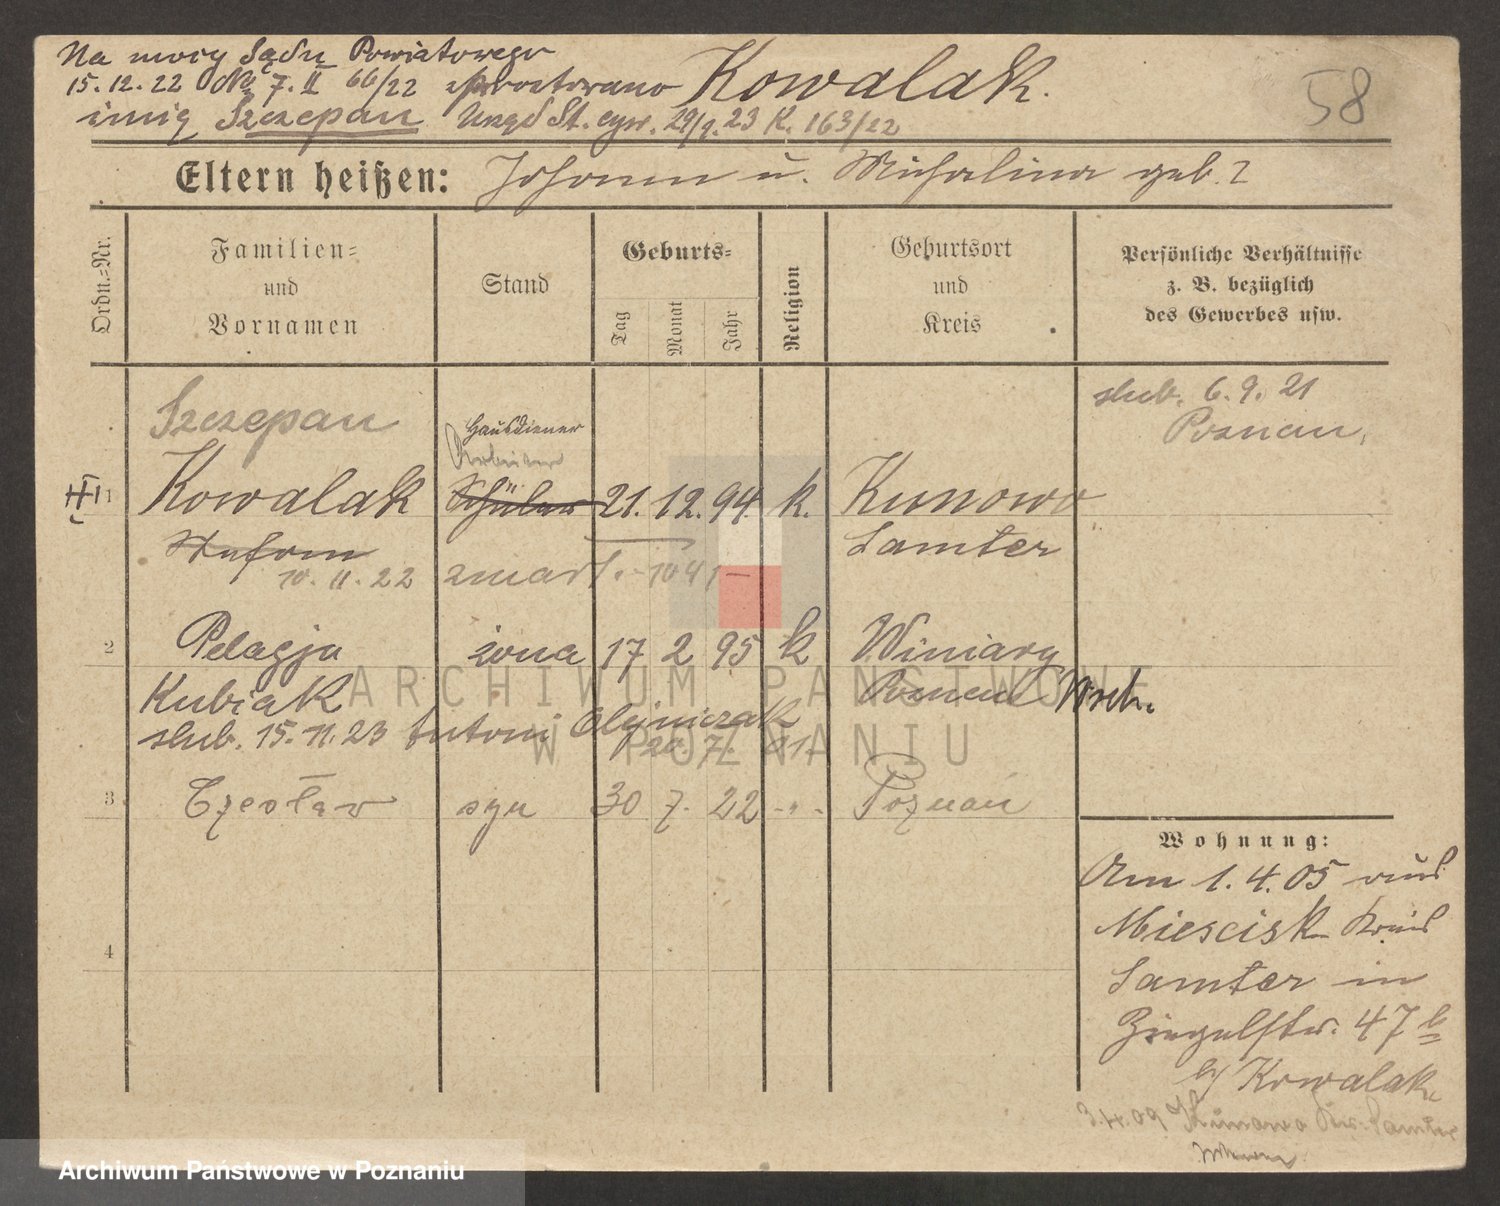 Na mocy Sądu Powiatowego
15.12.22 No 7. II 66/22 sprostowano Kowalak.
imię Szczepan Urząd St. cyw. 29/9. 23 K. 163/22
58
Eltern heißen: Johann u. Michalina geb. ?
Ordn.=Nr.
Familien=
und
Vornamen
Stand
Geburts=
Tag
Monat
Jahr
Religion
Geburtsort
und
Kreis
Persönliche Verhältnisse
z. B. bezüglich
des Gewerbes usw.
Szczepan
Hausdiener
Arbeiter
ślub. 6.9.21
Poznań,
1 Kowalak Schüler 21. 12. 94. k. Kunowo
Stefan Samter
10. 11. 22 zmarł. - 1941 -
2 Pelagja żona 17 2 95 k Winiary
Kubiak Poznań Wsch.
ślub. 15.11.23 Antoni Olejniczak
20. 7. 01.
3 Czesław syn 30 7. 22 - " - Poznań
4
Wohnung:
Am 1.4.05 aus
Miescisk Kreis
Samter in
Ziegelstr. 47 b
b/ Kowalak
3.4.09 Kunowo Kr. Samter
ARCHIWUM PAŃSTWOWE
W POZNANIU
Archiwum Państwowe w Poznaniu